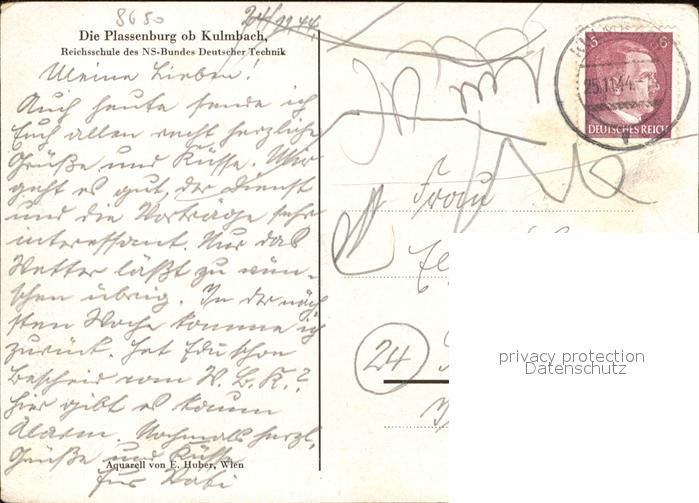 8650
24/11 44
Die Plassenburg ob Kulmbach,
Reichsschule des NS-Bundes Deutscher Technik
Meine Lieben!
Auch heute sende ich
Euch allen recht herzliche
Grüße und Küsse. Mir
geht es gut, der Dienst
und die Vorträge sehr
interessant. Nur das
Wetter läßt zu wün-
schen übrig. In der näch
sten Woche komme ich
zurück. Hat Edu schon
Bescheid vom W. B. K.?
Hier gibt es kaum
Alarm. Nochmals herzl.
Grüße und Küsse
Aquarell von E. Huber, Wien
25.11.44
DEUTSCHES REICH
6 6
Frau
24
privacy protection
Datenschutz